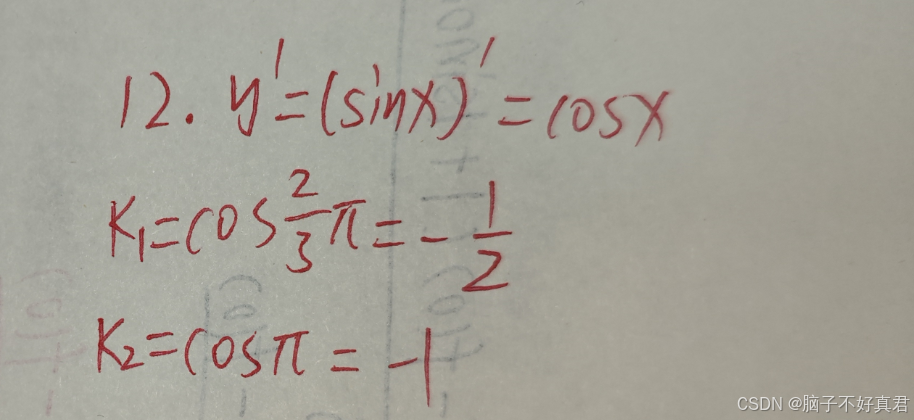 12. y'=(sinx)'=cosx
K₁=cos\frac{2}{3}π=-\frac{1}{2}
K₂=cosπ=-1
CSDN @脑子不好真君